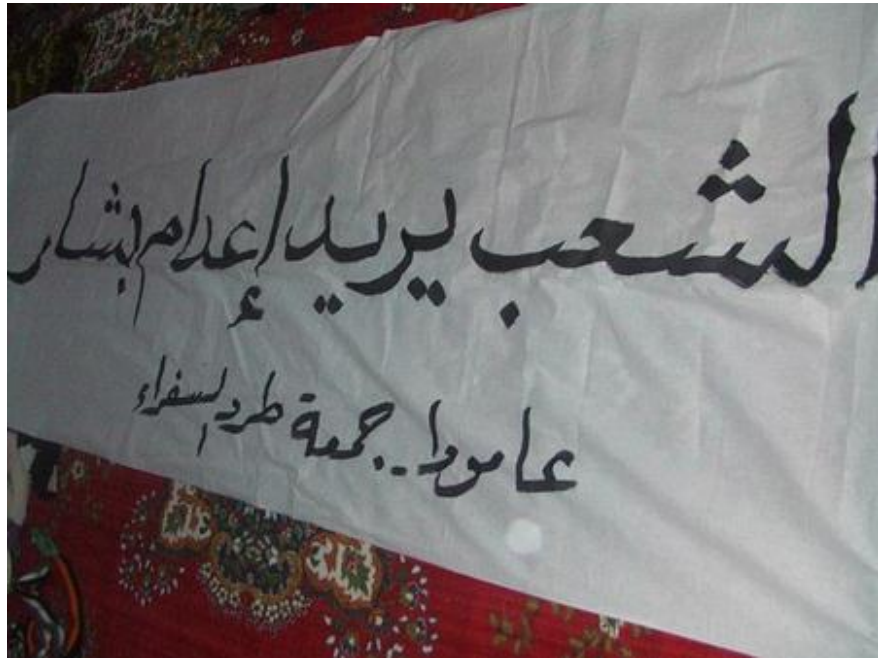 الشعب يريد إعدام بشار
عامودا - جمعة طرد السفراء